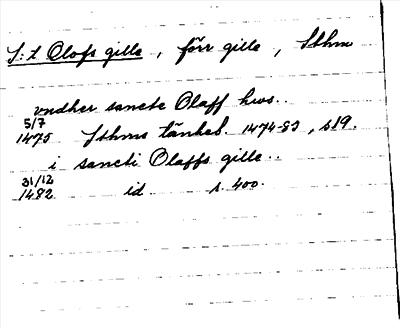 S:t Olofs gille, förr gille, Sthm
vndher sancte Olaff hws..
5/7
1475 Sthms tänkeb. 1474-83, s19.
i sancti Olaffs gille..
31/12
1482 id s. 400.